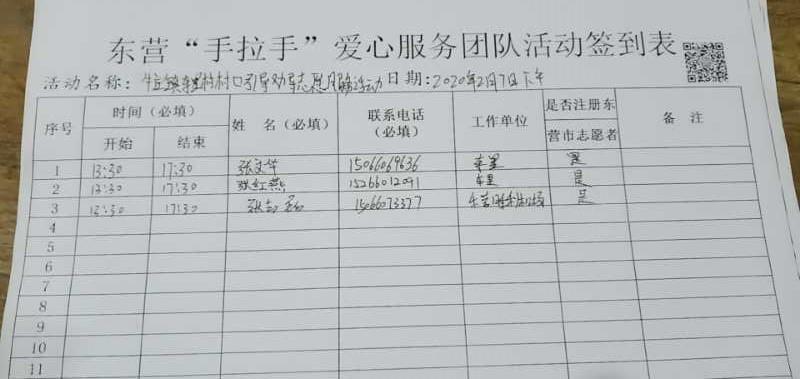 东营“手拉手”爱心服务团队活动签到表
活动名称: 村口引导劝导志愿服务活动 日期:2020年2月7日下午
序号 时间（必填） 姓 名（必填） 联系电话（必填） 工作单位 是否注册东营市志愿者 备 注
开始 结束
1 13:30 17:30 张文华 15066069636 车里 是
2 13:30 17:30 张红燕 15266012091 车里 是
3 13:30 17:30 是
4
5
6
7
8
9
10
11